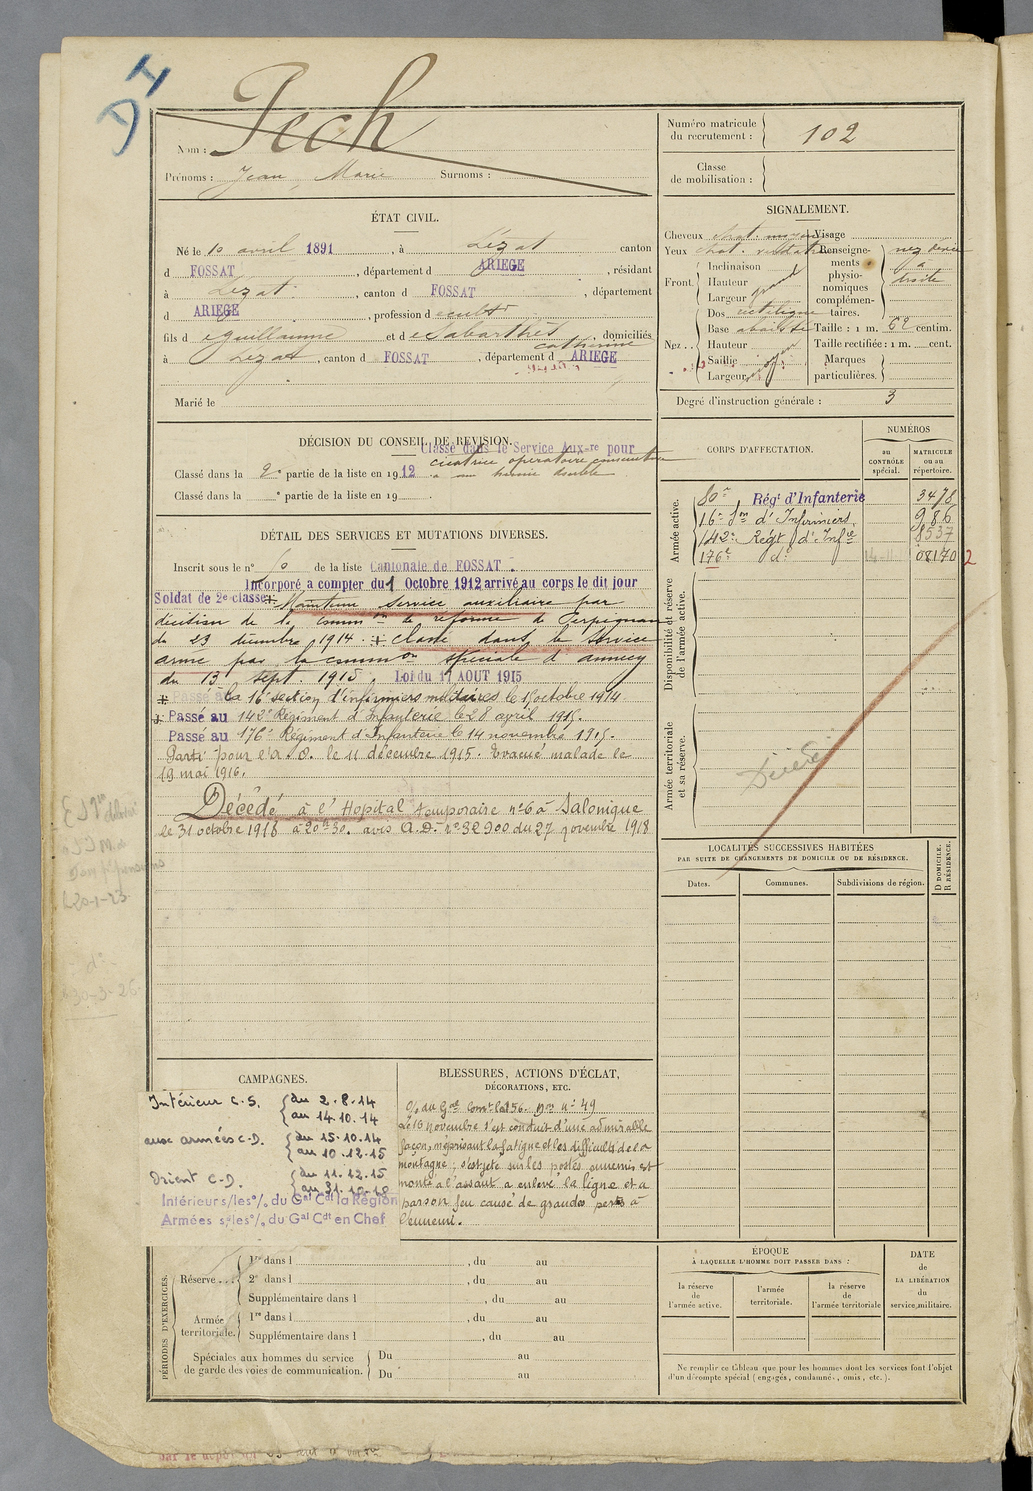 Nom : Pech
Prénoms : Jean Marie Surnoms :
Numéro matricule du recrutement : 102
Classe de mobilisation :
ÉTAT CIVIL.
Né le 10 avril 1891, à Lézat canton
d FOSSAT, département d ARIEGE, résidant
à Lézat, canton d FOSSAT, département
d ARIEGE, profession d cultr
fils d e Guillaume et d e Sabarthès Catherine domiciliés
à Lézat, canton d FOSSAT, département d ARIEGE
Marié le
SIGNALEMENT.
Cheveux chat. moyen Visage
Yeux chat. Renseignements physionomiques complémentaires. nez dévié à droite
Front. Inclinaison
Hauteur
Largeur grand
Nez. Dos rectiligne
Base abaissée Taille : 1 m. 62 centim.
Hauteur Taille rectifiée : 1 m. cent.
Saillie Marques
Largeur particulières.
Degré d'instruction générale : 3
DÉCISION DU CONSEIL DE REVISION.
Classé dans le Service Aux-re pour
cicatrice opératoire consécutive
Classé dans la 2e partie de la liste en 1912 à une hernie double
Classé dans la e partie de la liste en 19
CORPS D'AFFECTATION.
NUMÉROS
au CONTRÔLE spécial.
MATRICULE ou au répertoire.
Armée active.
80e Régt d'Infanterie 3478
16e Son d'Infirmiers 986
142e Régt d'Infie 8537
176e do 08170
Disponibilité et réserve de l'armée active.
Armée territoriale et sa réserve.
Décédé
DÉTAIL DES SERVICES ET MUTATIONS DIVERSES.
Inscrit sous le no 50 de la liste Cantonale de FOSSAT.
Incorporé a compter du 1 Octobre 1912 arrivé au corps le dit jour
Soldat de 2e classe Maintenu service auxiliaire par
décision de la common de réforme de Perpignan
du 23 décembre 1914. + Classé dans le Service
armé par la common spéciale d'Annecy
du 13 sept. 1915. Loi du 17 AOUT 1915
+ Passé à la 16e section d'infirmiers militaires le 15 octobre 1914.
+ Passé au 142e Régiment d'Infanterie le 28 avril 1915.
Passé au 176e Régiment d'Infanterie le 14 novembre 1915.
Parti pour l'A.O. le 11 décembre 1915. Evacué malade le
19 mai 1916.
Décédé à l'Hopital temporaire no 6 à Salonique
le 31 octobre 1918 à 20h30. avis A.D. no 32900 du 27 novembre 1918
LOCALITÉS SUCCESSIVES HABITÉES
PAR SUITE DE CHANGEMENTS DE DOMICILE OU DE RÉSIDENCE.
Dates. Communes. Subdivisions de région. D DOMICILE. R RÉSIDENCE.
CAMPAGNES.
Intérieur C.S. du 2.8.14
au 14.10.14
aux armées C-D. du 15.10.14
au 10.12.15
Orient C-D. du 11.12.15
au 31.10.18
Intérieur s/les o/. du Gal Cdt la Région
Armées s/les o/. du Gal Cdt en Chef
BLESSURES, ACTIONS D'ÉCLAT,
DÉCORATIONS, ETC.
O/ du Gal Comt la 156. Don no 49
Le 10 novembre s'est conduit d'une admirable
façon, méprisant la fatigue et les difficultés de la
montagne ; s'est jeté sur les postes ennemis est
monté à l'assaut a enlevé la ligne et a
par son feu causé de grandes pertes à
l'ennemi.
PÉRIODES D'EXERCICES.
Réserve. 1re dans l , du au
2e dans l , du au
Supplémentaire dans l , du au
Armée territoriale. 1re dans l , du au
Supplémentaire dans l , du au
Spéciales aux hommes du service de garde des voies de communication. Du au
Du au
ÉPOQUE
À LAQUELLE L'HOMME DOIT PASSER DANS :
la réserve de l'armée active.
l'armée territoriale.
la réserve de l'armée territoriale
DATE de LA LIBÉRATION du service militaire.
Ne remplir ce tableau que pour les hommes dont les services font l'objet
d'un décompte spécial (engagés, condamnés, omis, etc.).